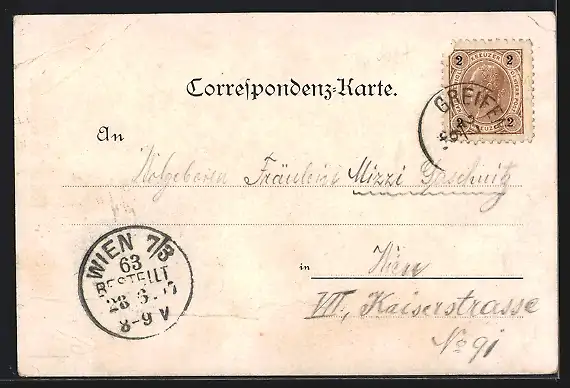 Correspondenz-Karte.
2 KREUZER 2
2 2
GREIF
An
Wolgeboren Fräulein Mizzi
in Wien
VII, Kaiserstrasse
No 91
WIEN 7/3
63
BESTELLT
28 3. 7
8-9 V